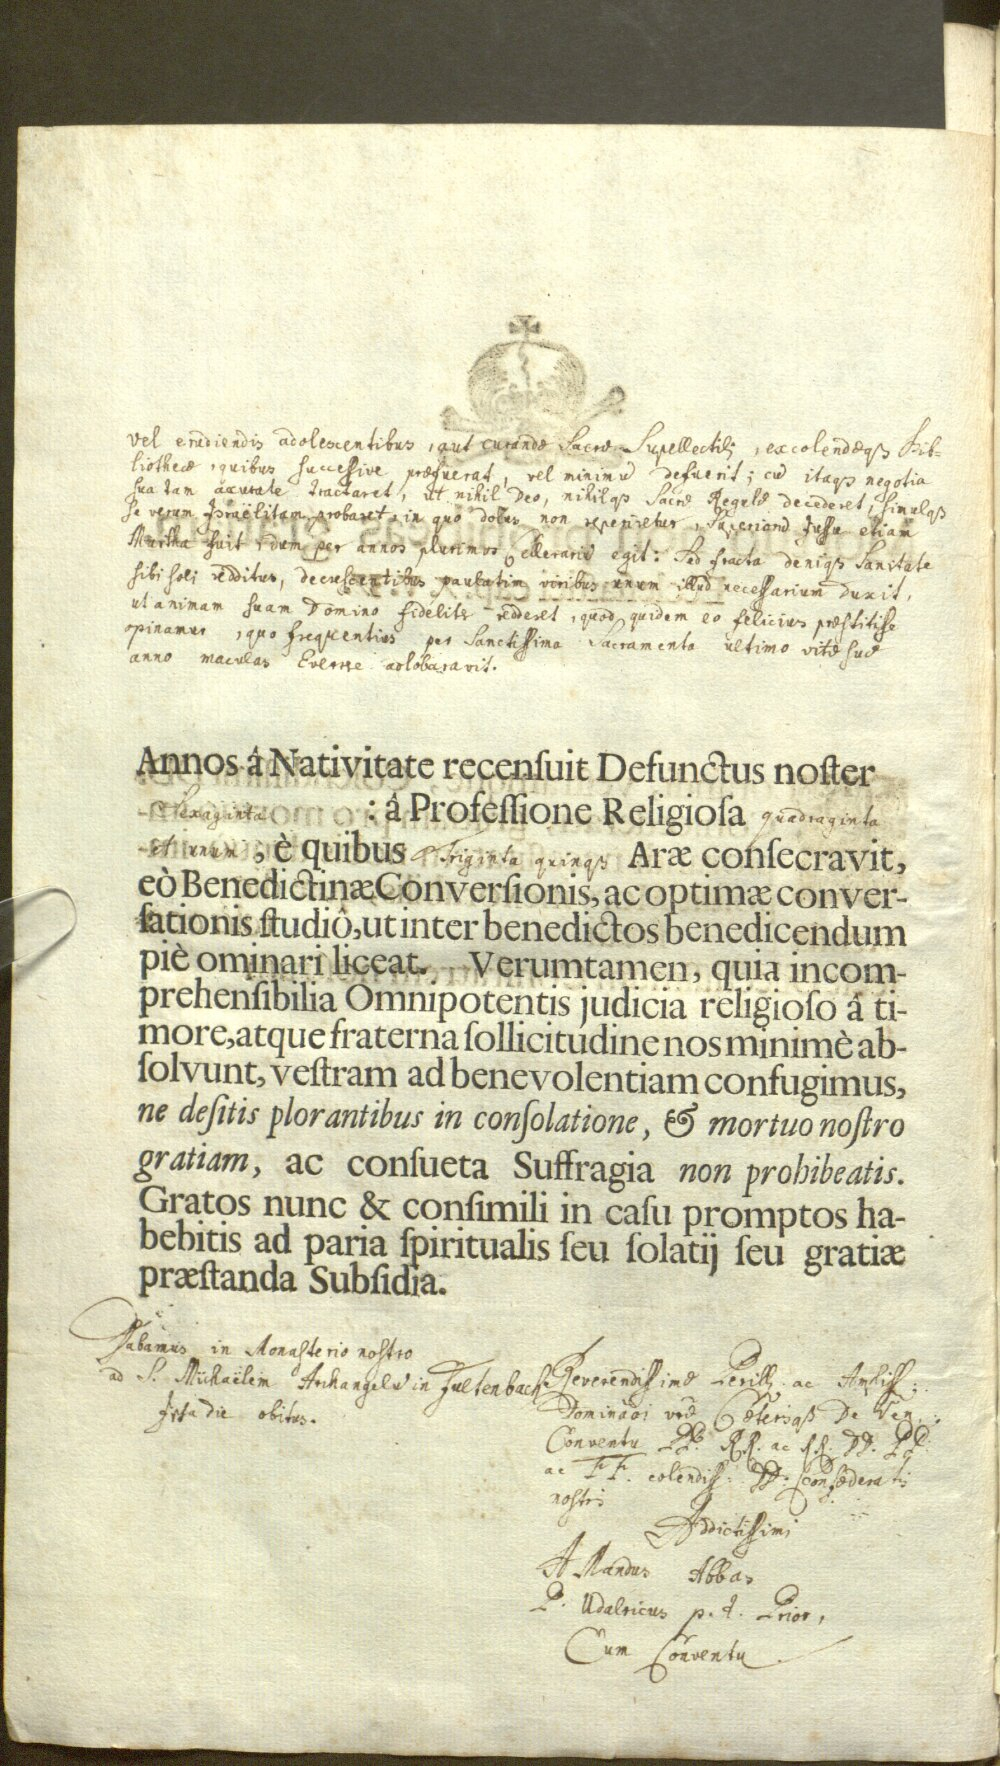 vel erudiendis adolescentibus, aut curandæ Sacræ Supellectili, excolendæqs Bib-
liothecæ, quibus successive præfuerat, vel minimũ defuerit; cũ itaqs negotia
sua tam accurate tractaret, ut nihil Deo, nihilqs Sacræ Regulæ decederet, simulqs
se verum Israëlitam probaret, in quo dolus non reperiretur, Superiorũ Jussu etiam
Martha fuit, dum per annos plurimos Cellerariũ egit: Sed fracta deniqs Sanitate
sibi soli redditus, decrescentibus paulatim viribus unum illud necessarium duxit,
ut animam suam Domino fideliter redderet, quod quidem eo felicius præstitisse
opinamur, quo frequentius per Sanctissima Sacramenta ultimo vitæ suæ
anno maculas
Annos â Nativitate recensuit Defunctus noster
sexaginta : â Professione Religiosa quadraginta
et unum, è quibus triginta quinqs Aræ consecravit,
eò BenedictinæConversionis, ac optimæ conver-
sationis studiô, ut inter benedictos benedicendum
piè ominari liceat. Verumtamen, quia incom-
prehensibilia Omnipotentis judicia religioso â ti-
more, atque fraterna sollicitudine nos minimè ab-
solvunt, vestram ad benevolentiam confugimus,
ne desitis plorantibus in consolatione, & mortuo nostro
gratiam, ac consueta Suffragia non prohibeatis.
Gratos nunc & consimili in casu promptos ha-
bebitis ad paria spiritualis seu solatij seu gratiæ
præstanda Subsidia.
Dabamus in Monasterio nostro
ad S. Michaëlem Archangelũ in Fultenbach
ipsa die obitus.
Reverendissimæ Perill. ac Ampliss:
Dominaoi vræ Cæterisqß De Ven:
Conventu PP. RR. ac RR. DD. PP.
ac FF. colendiss: DD: Confœderatis
nostris
Addictissimi
AMandus Abbas
P. Udalricus p. t. Prior,
Cum Conventu.